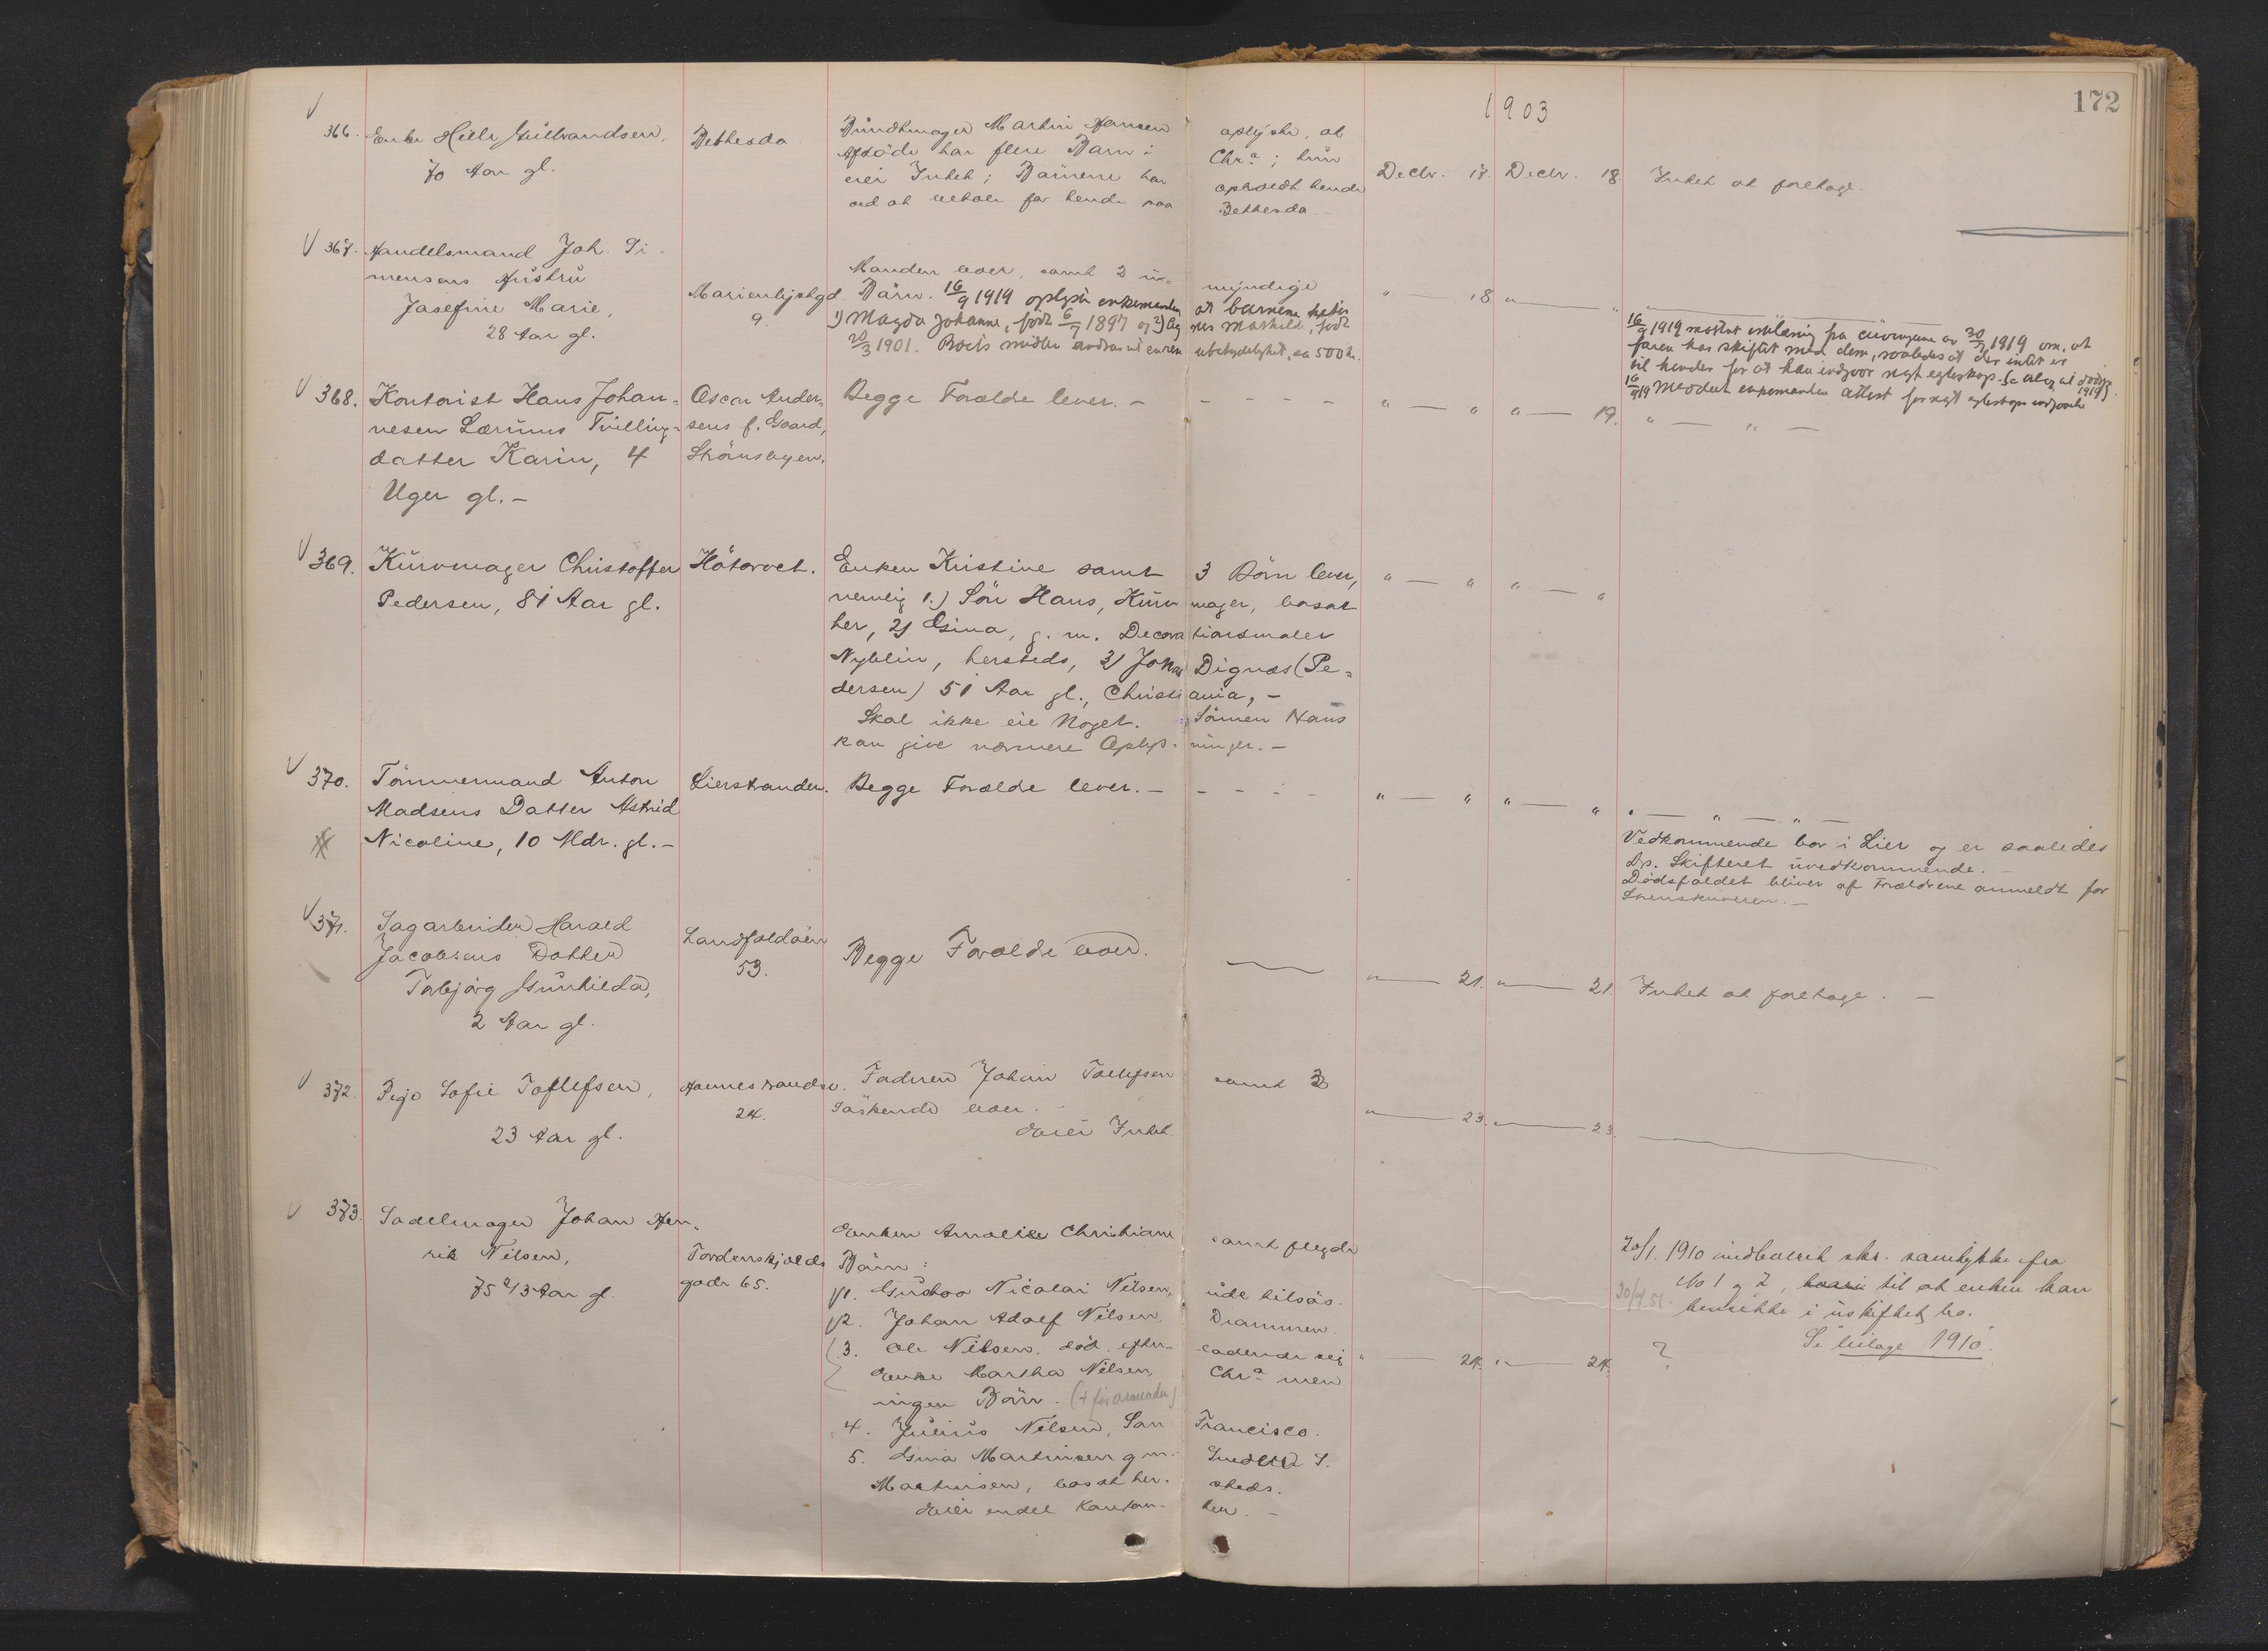 1903
172
366. Enke Helle Gulbrandsen,
70 Aar gl.
Bethesda
Bundtmager Martin Hansen oplyste, at
Afdöde har flere Barn i Chr.a; hun
eier Intet; Börnene har opholdt hende
ved at betale for hende paa Bethesda.
Decbr. 17. Decbr. 18. Intet at foretage.
367. Handelsmand Joh. Si-
mensens Hustru
Josefine Marie,
28 Aar gl.
Marienlystgd.
9.
Manden lever, samt 2 u- myndige
Börn. 16/9 1919 oplyste enkemanden at barnene heter
1) Magda Johanne, født 6/7 1897 og 2) Ag nes Mathilde, født
20/3 1901. Boets midler androg til en ren ubetydelighet, ca 500 kr.
" — 18. " — "
16/9 1919 mottat erklæring fra arvingene av 30/7 1919 om, at
faren har skiftet med dem, saaledes at der intet er
til hinder for at han indgaar nyt egteskap.
16/9 19 Meddelt enkemanden attest for nyt egteskaps indgaaelse
368. Kontorist Hans Johan-
nesen Lærums Tvilling-
datter Karin, 4
Uger gl. —
Oscar Ander-
sens f. Gaard,
Strömsöyen.
Begge Forældre lever. — - - - -
" — " " — 19. " — " —
369. Kurvmager Christoffer
Pedersen, 81 Aar gl.
Hötorvet.
Enken Kristine samt 3 Börn lever,
nemlig 1.) Sön Hans, Kurv mager, bosat
her, 2) Gina, g. m. Decora tionsmaler
Nyblin, hersteds, 3) Johan Dignæs (Pe-
dersen) 51 Aar gl., Christi ania, —
Skal ikke eie Noget. Sönnen Hans
kan give nærmere Oplys- ninger. —
" — " " — "
370. Tömmermand Anton
Madsens Datter Astrid
Nicoline, 10 Mdr. gl. —
Lierstranden.
Begge Forældre lever. — - - - -
" — " " — " " — " — " —
Vedkommende bor i Lier og er saaledes
Ds. Skifteret uvedkommende. —
Dödsfaldet bliver af Forældrene anmeldt for
Sorenskriveren. —
371. Sagarbeider Harald
Jacobsens Datter
Torbjörg Gunhilda,
2 Aar gl.
Landfaldöien
53.
Begge Forældre lever. —
" — 21. " — 21. Intet at foretage. —
372. Pige Sofie Toflefsen,
23 Aar gl.
Havnestranden.
24.
Faderen Johan Toflefsen samt 3
Söskende lever.
Eier Intet.
" — 23. " — 23. —
373. Sadelmager Johan Hen-
rik Nilsen,
75 2/3 Aar gl.
Tordenskjolds
gade 65.
Enken Amalie Christiane samt fölgde
Börn:
1. Gustav Nicolai Nilsen, ude tilsös.
2. Johan Adolf Nilsen, Drammen.
3. Ole Nilsen, död, efter- ladende sig
Enke Martha Nilsen, Chr.a men
ingen Börn.
4. Julius Nilsen, San Francisco.
5. Gina Martinsen g m. Snedker S.
Martinsen, bosat her- steds.
Eier endel Kontan- ter. —
" — 24. " — 24. ?
20/1. 1910 indleveret skr. samtykke fra
No 1 og 2, til at enken kan
hensidde i uskiftet bo.
Se bilage 1910.
30/4 51.